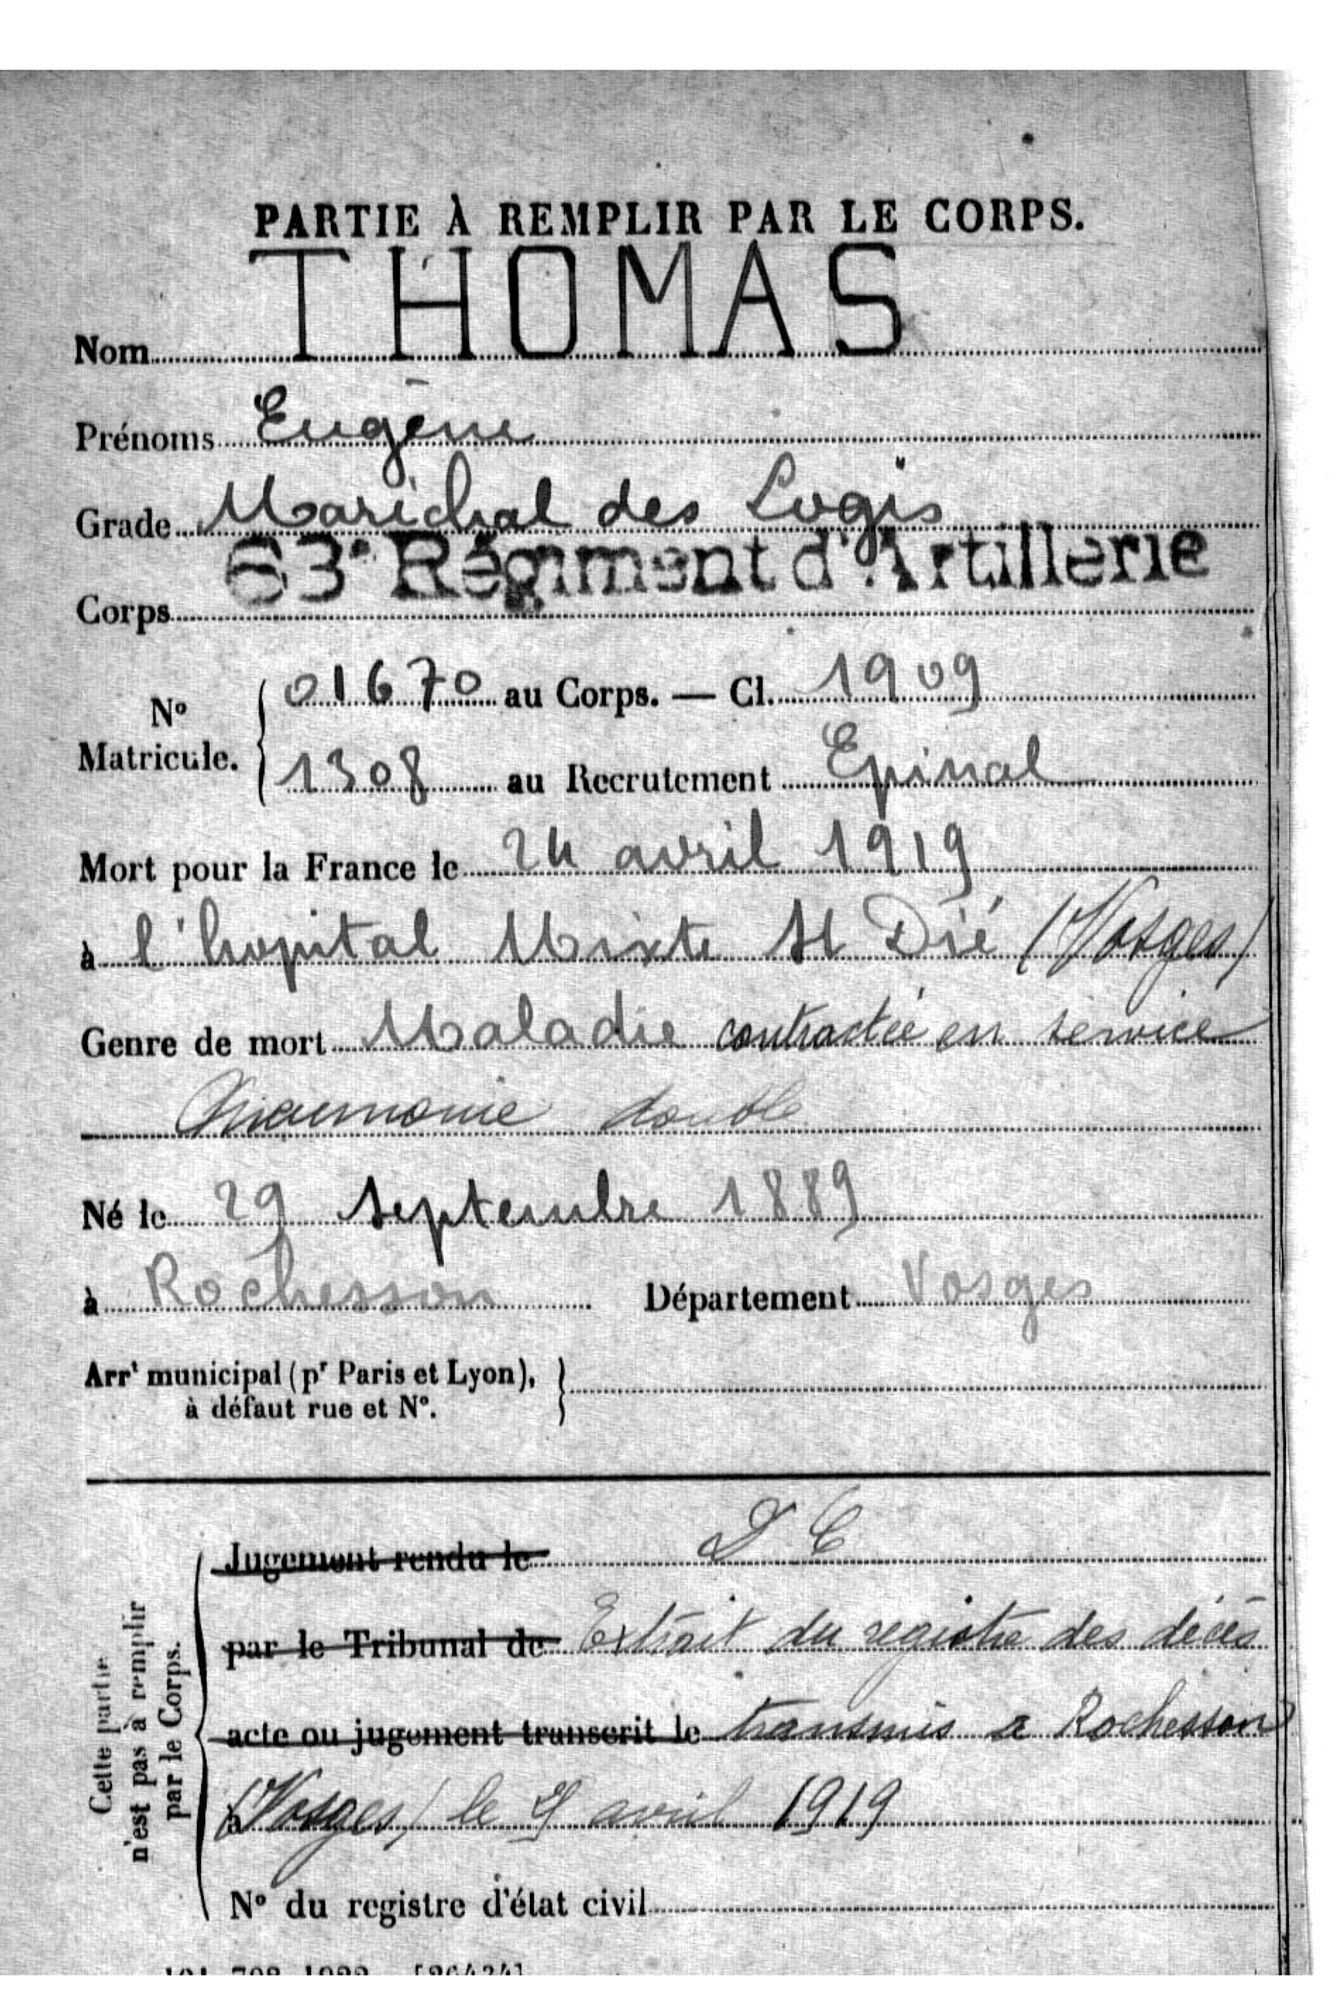 PARTIE À REMPLIR PAR LE CORPS.
Nom THOMAS
Prénoms Eugène
Grade Maréchal des Logis
Corps 63e Régiment d'Artillerie
N° Matricule. 01670 au Corps. — Cl. 1909
1308 au Recrutement Epinal
Mort pour la France le 24 avril 1919
à l'hopital Mixte St Dié (Vosges)
Genre de mort Maladie contractée en service
Pneumonie double
Né le 29 septembre 1889
à Rochesson Département Vosges
Arrt municipal (pr Paris et Lyon),
à défaut rue et N°.
Cette partie
n'est pas à remplir
par le Corps.
Jugement rendu le D C
par le Tribunal de Extrait du registre des décès
acte ou jugement transcrit le transmis a Rochesson
à (Vosges) le avril 1919
N° du registre d'état civil